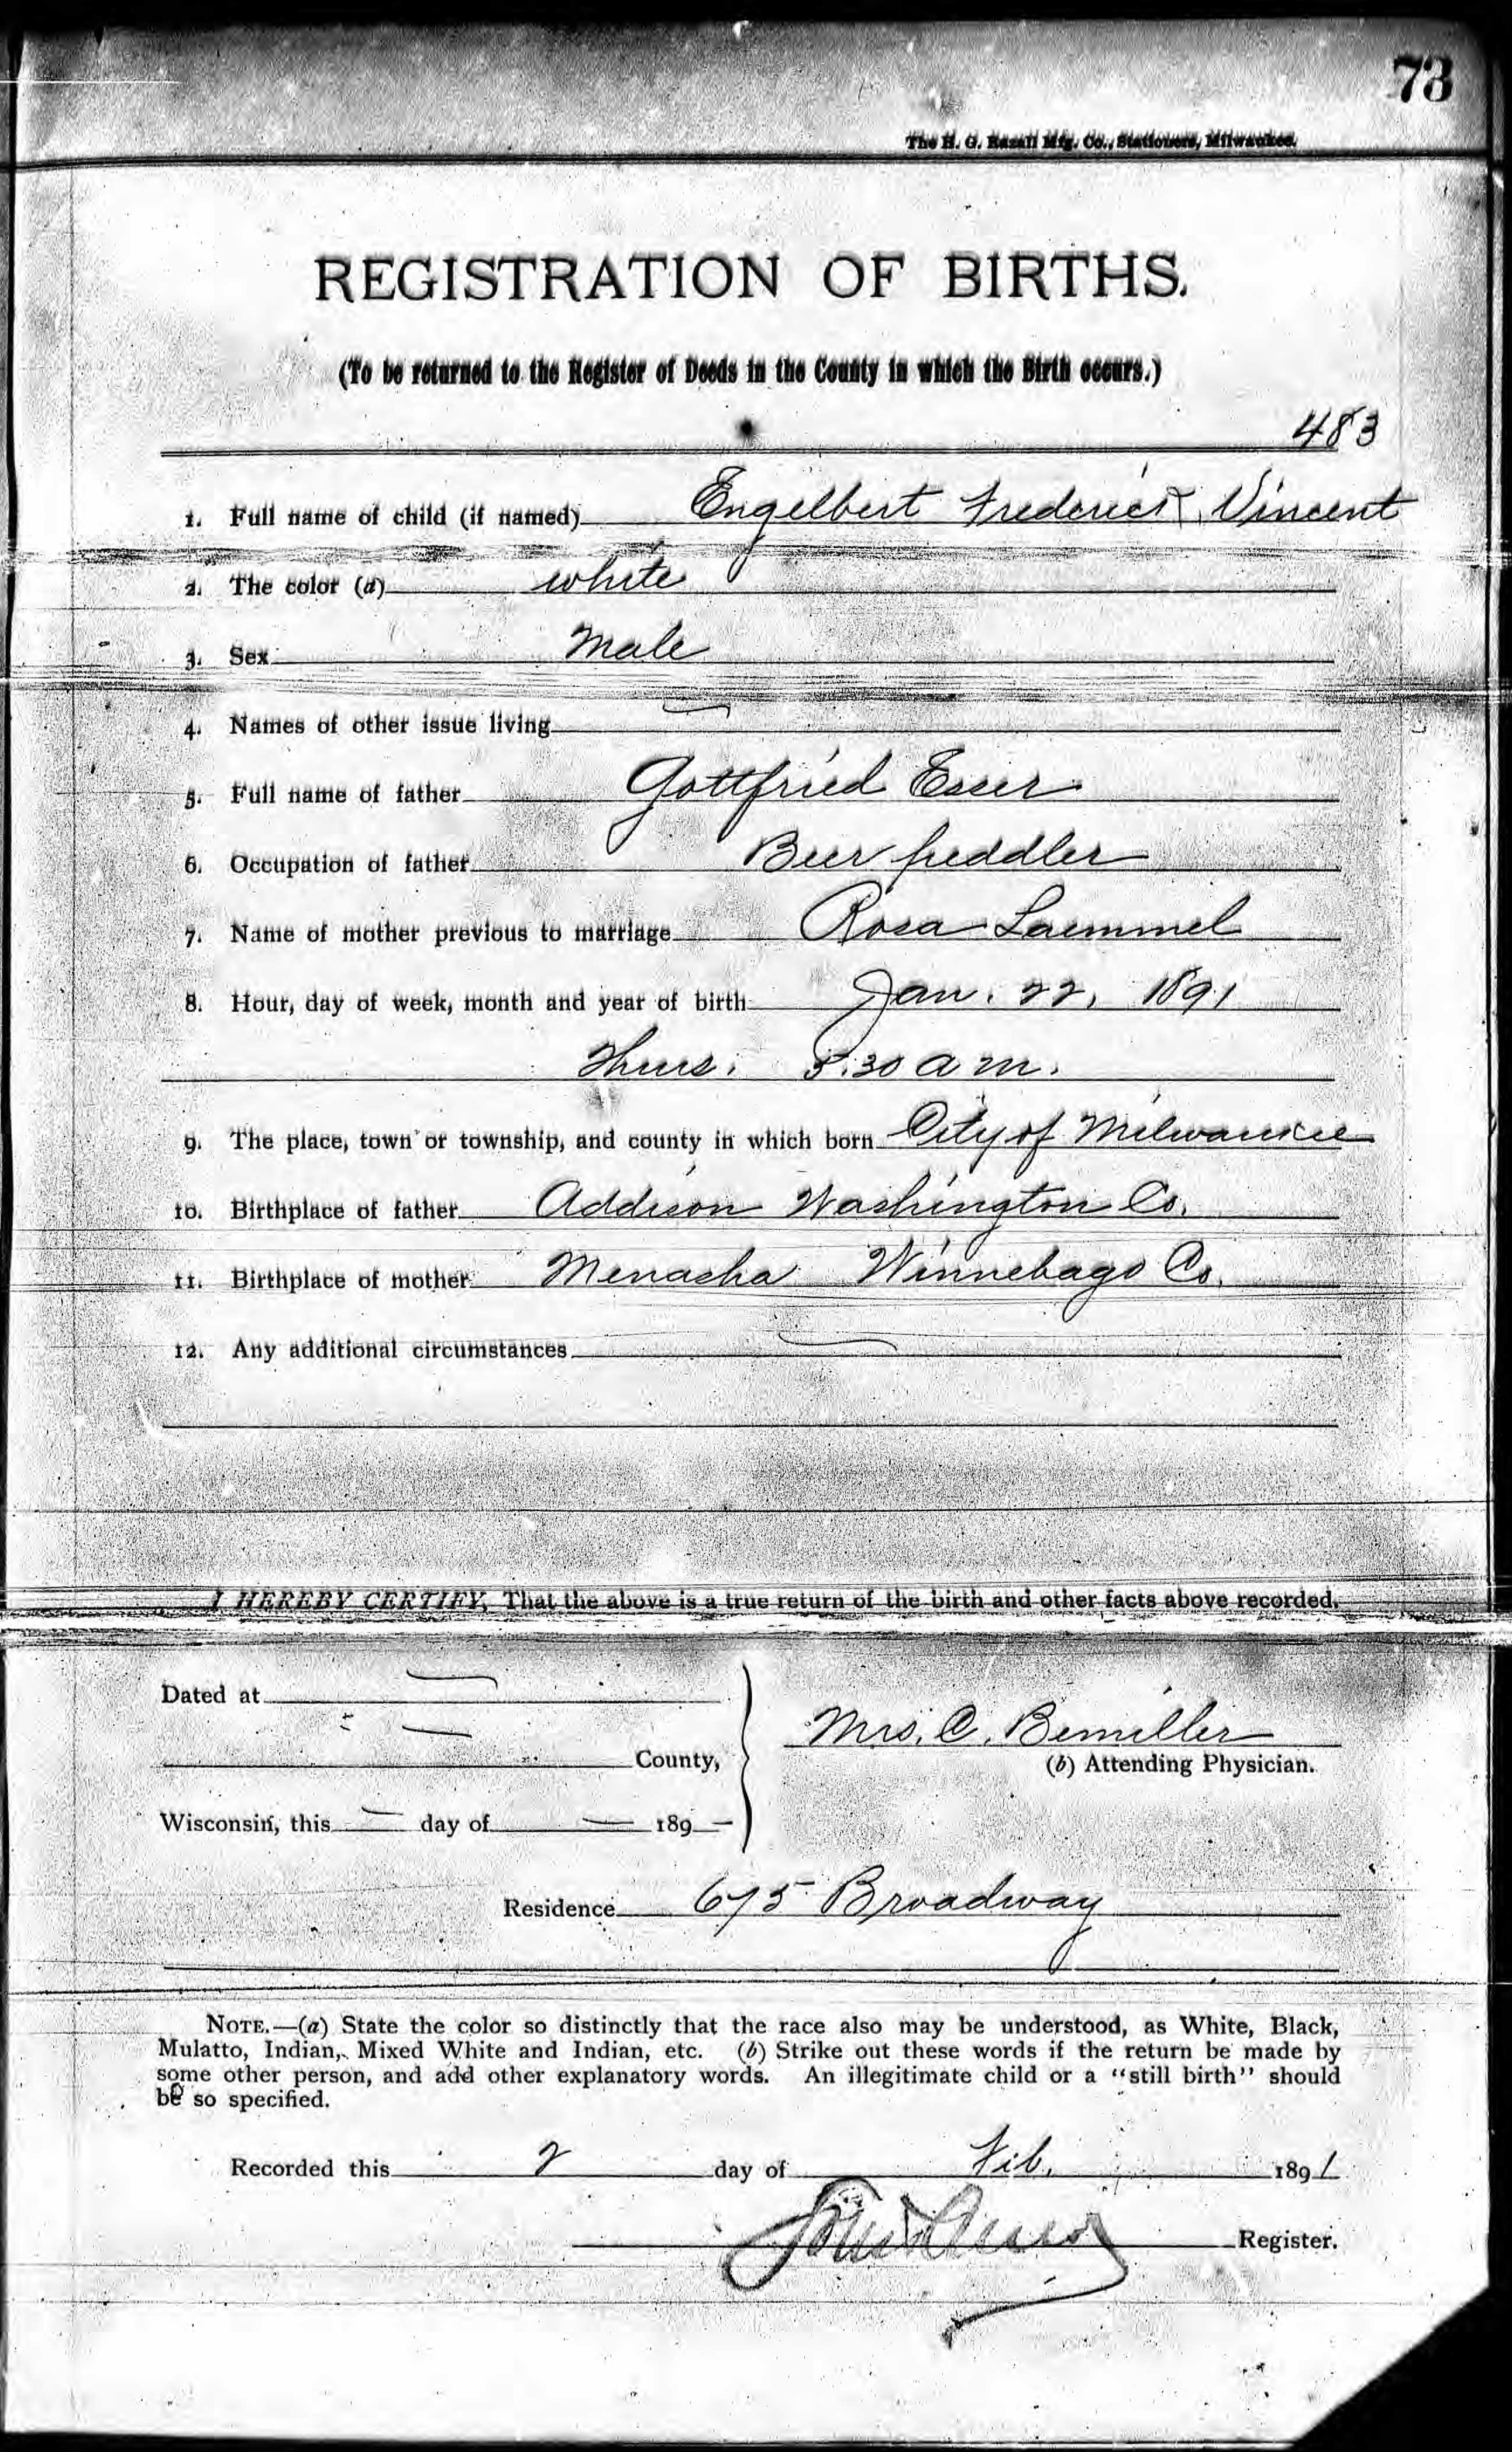 73
The H. G. Razall Mfg. Co., Stationers, Milwaukee.
REGISTRATION OF BIRTHS.
(To be returned to the Register of Deeds in the County in which the Birth occurs.)
483
1. Full name of child (if named) Engelbert Frederick Vincent
2. The color (a) white
3. Sex Male
4. Names of other issue living —
5. Full name of father Gottfried Esser
6. Occupation of father Beer peddler
7. Name of mother previous to marriage Rosa Laemmel
8. Hour, day of week, month and year of birth Jan. 22, 1891
Thurs. 5.30 a m.
9. The place, town or township, and county in which born City of Milwaukee
10. Birthplace of father Addison Washington Co.
11. Birthplace of mother Menasha Winnebago Co.
12. Any additional circumstances —
I HEREBY CERTIFY, That the above is a true return of the birth and other facts above recorded.
Dated at —
— County,
Mrs. C. Bemiller
(b) Attending Physician.
Wisconsin, this — day of — 189 —
Residence 675 Broadway
NOTE.—(a) State the color so distinctly that the race also may be understood, as White, Black,
Mulatto, Indian, Mixed White and Indian, etc. (b) Strike out these words if the return be made by
some other person, and add other explanatory words. An illegitimate child or a "still birth" should
be so specified.
Recorded this 2 day of Feb. 1891
Register.